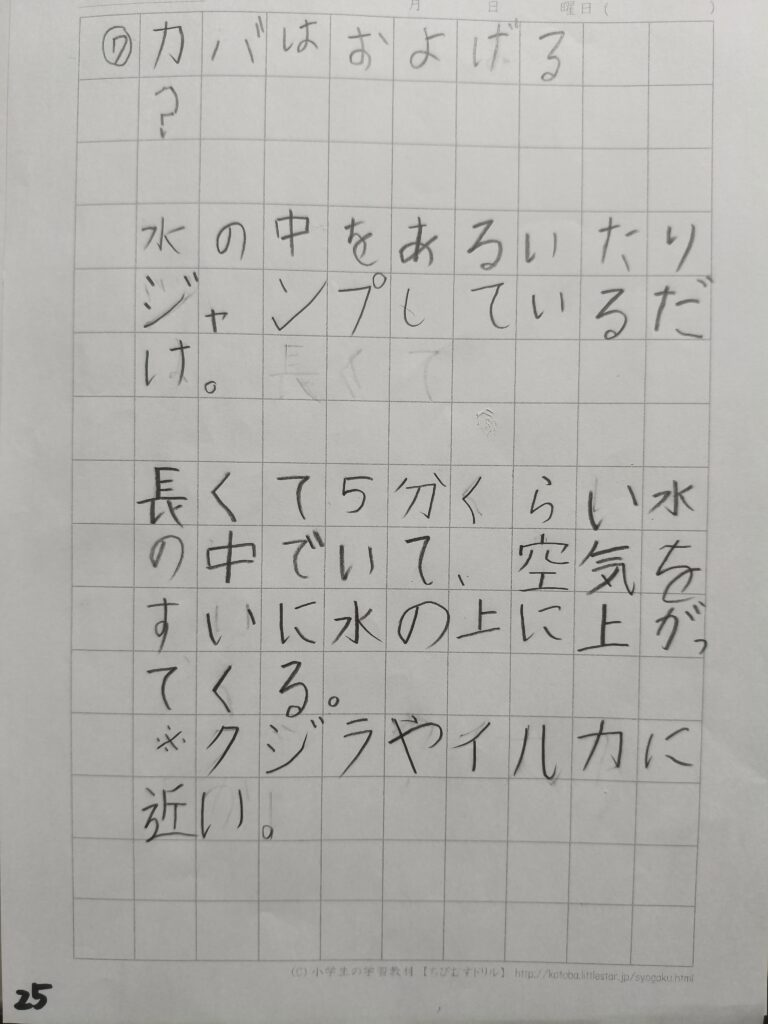 月 日 曜日( )
⑦カバはおよげる
?
水の中をあるいたり
ジャンプしているだ
け。長くて
長くて5分くらい水
の中でいて、空気を
すいに水の上に上がっ
てくる。
※クジラやイルカに
近い。
(C)小学生の学習教材【ちびむすドリル】 http://kotoba.littlestar.jp/syogaku.html
25